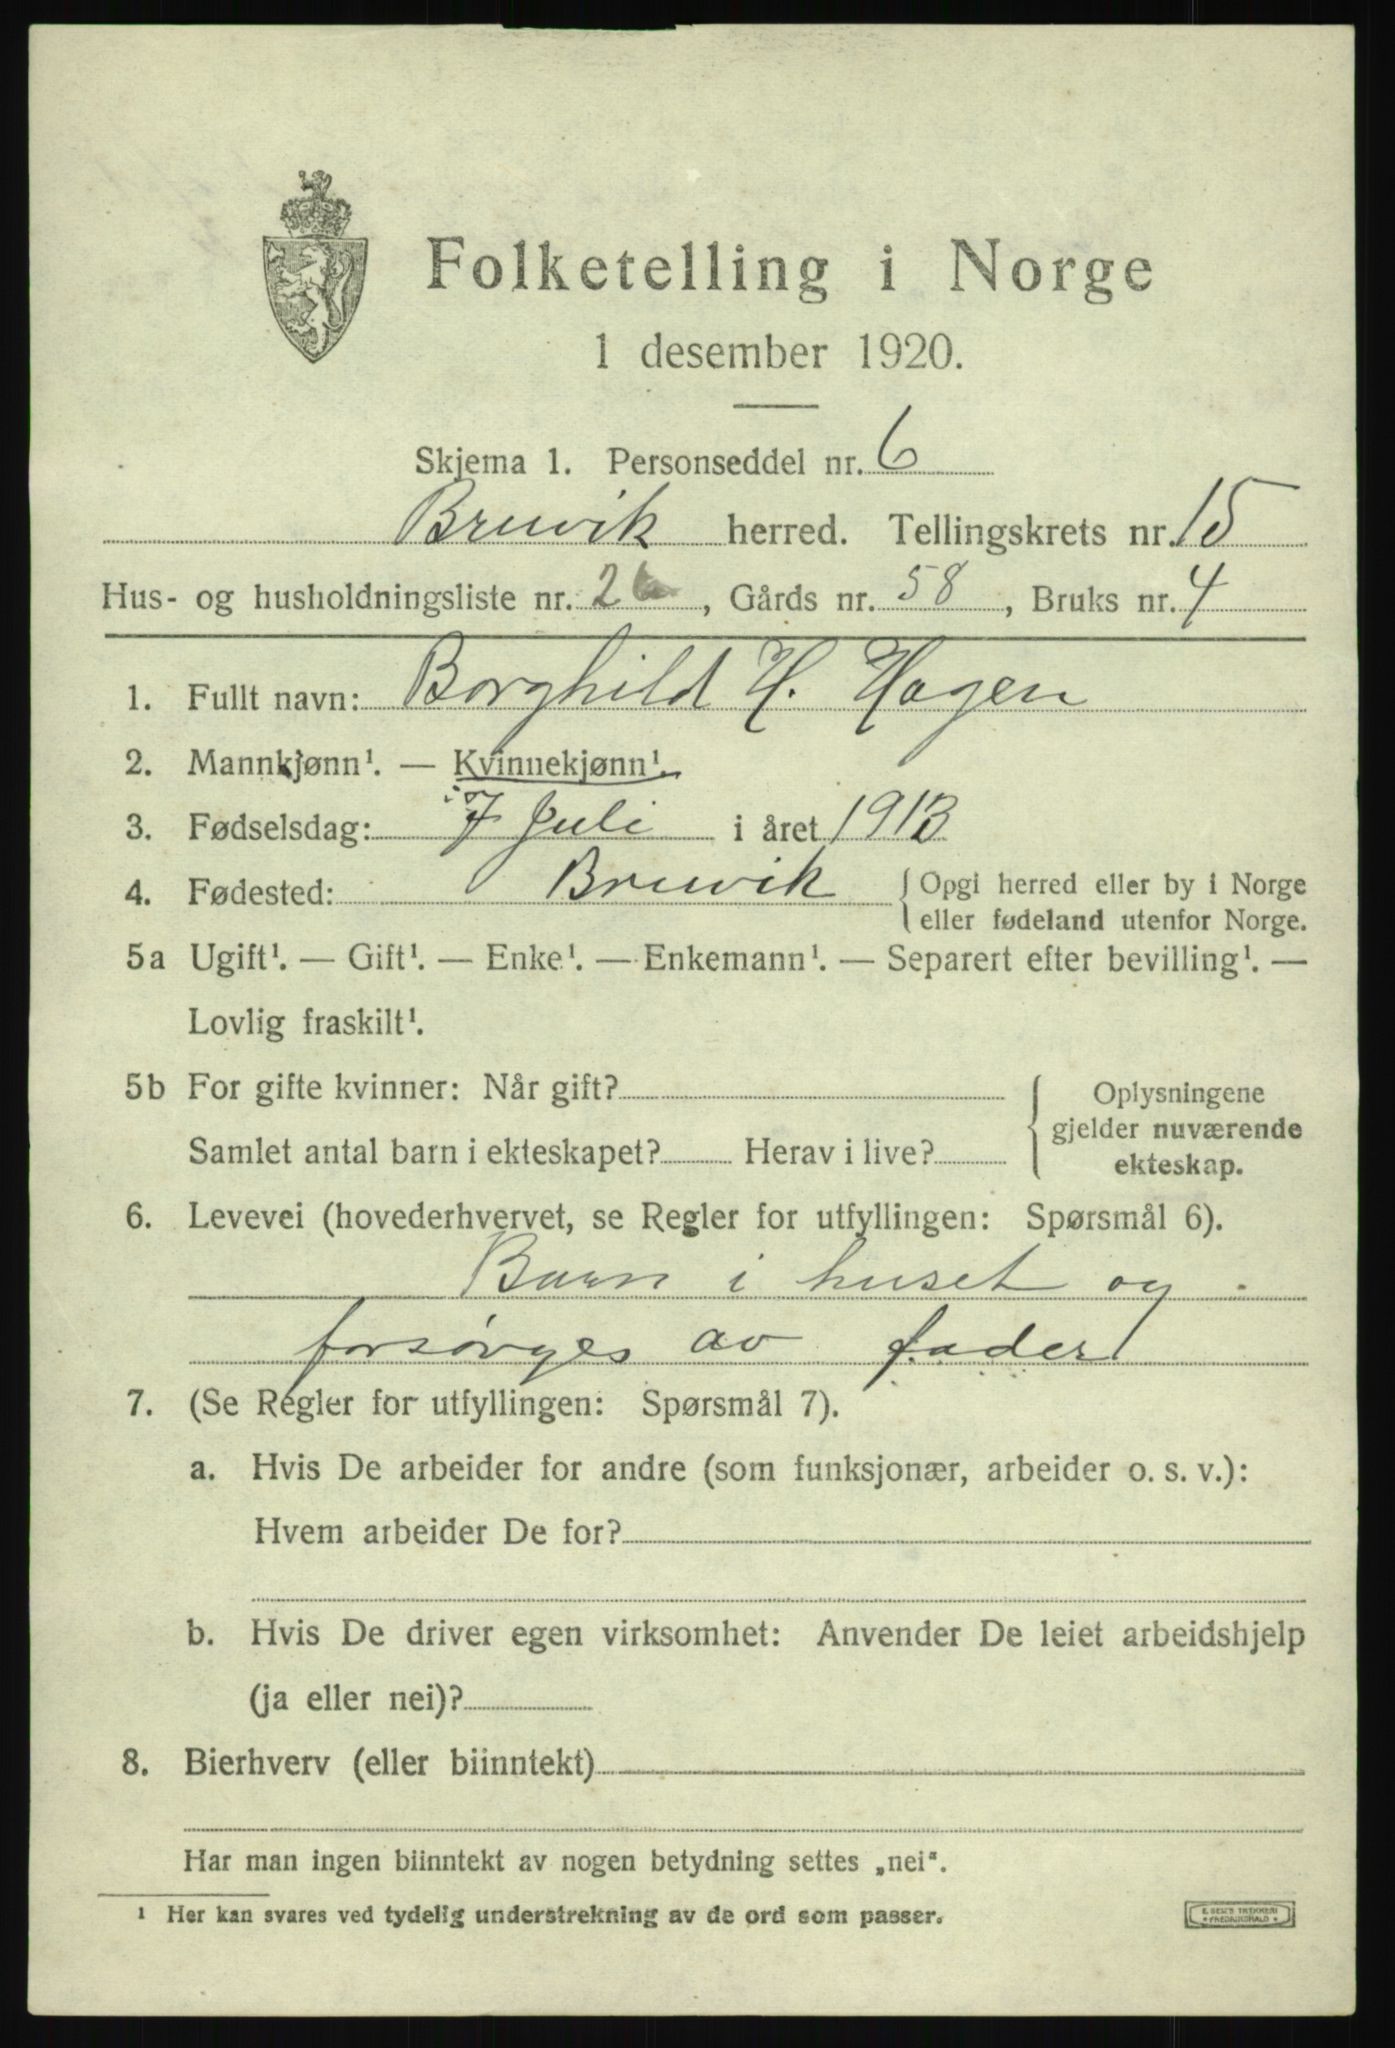 Folketelling i Norge
1 desember 1920.
Skjema 1. Personseddel nr. 6
Bruvik herred. Tellingskrets nr. 15
Hus- og husholdningsliste nr. 26, Gårds nr. 58, Bruks nr. 4
1. Fullt navn: Borghild H. Hagen
2. Mannkjønn¹. — Kvinnekjønn¹.
3. Fødselsdag: 7 Juli i året 1913
4. Fødested: Bruvik { Opgi herred eller by i Norge
eller fødeland utenfor Norge.
5a Ugift¹. — Gift¹. — Enke¹. — Enkemann¹. — Separert efter bevilling¹. —
Lovlig fraskilt¹.
5b For gifte kvinner: Når gift?
Samlet antal barn i ekteskapet? Herav i live?
{ Oplysningene
gjelder nuværende
ekteskap.
6. Levevei (hovederhvervet, se Regler for utfyllingen: Spørsmål 6).
Barn i huset og
forsørges av fader
7. (Se Regler for utfyllingen: Spørsmål 7).
a. Hvis De arbeider for andre (som funksjonær, arbeider o. s. v.):
Hvem arbeider De for?
b. Hvis De driver egen virksomhet: Anvender De leiet arbeidshjelp
(ja eller nei)?
8. Bierhverv (eller biinntekt)
Har man ingen biinntekt av nogen betydning settes „nei".
¹ Her kan svares ved tydelig understrekning av de ord som passer.